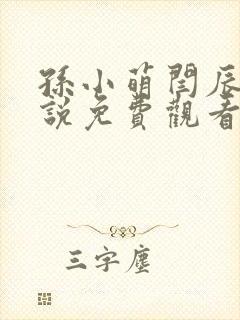 孫小萌閆辰
說免費觀看
三字塵